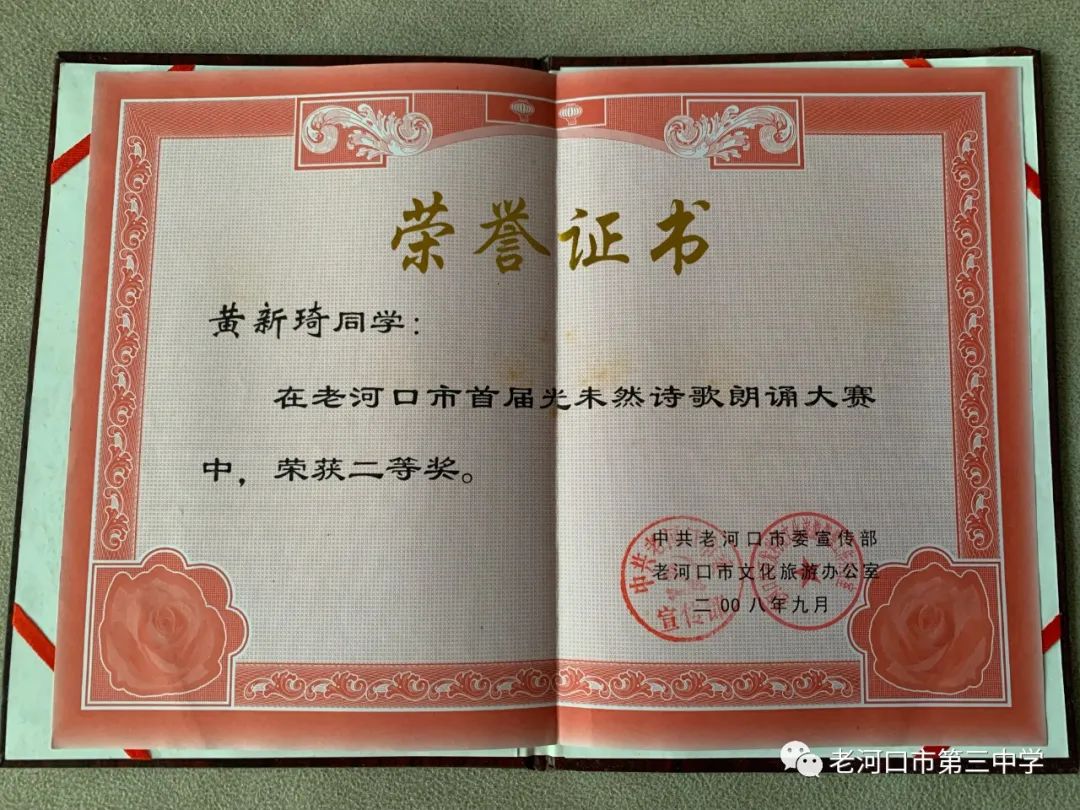 荣誉证书
黄新琦同学：
在老河口市首届光未然诗歌朗诵大赛
中，荣获二等奖。
中共老河口市委宣传部
老河口市文化旅游办公室
二00八年九月
中共老
宣传部
老河口市第三中学